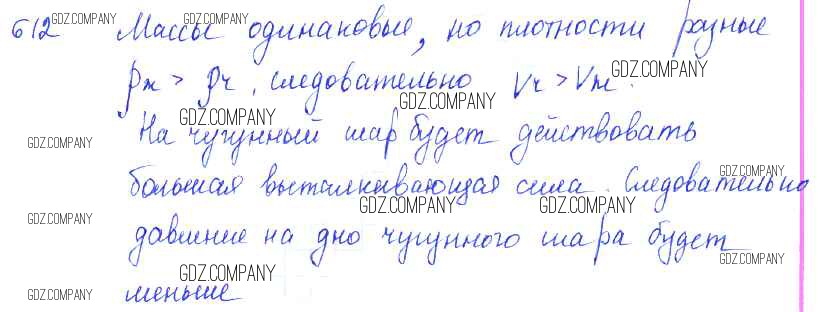 612 Массы одинаковые, но плотности разные
ρж > ρч, следовательно Vч > Vж.
На чугунный шар будет действовать
большая выталкивающая сила. Следовательно
давление на дно чугунного шара будет
меньше
GDZ.COMPANY
GDZ.COMPANY
GDZ.COMPANY
GDZ.COMPANY
GDZ.COMPANY
GDZ.COMPANY
GDZ.COMPANY
GDZ.COMPANY
GDZ.COMPANY
GDZ.COMPANY
GDZ.COMPANY
GDZ.COMPANY
GDZ.COMPANY